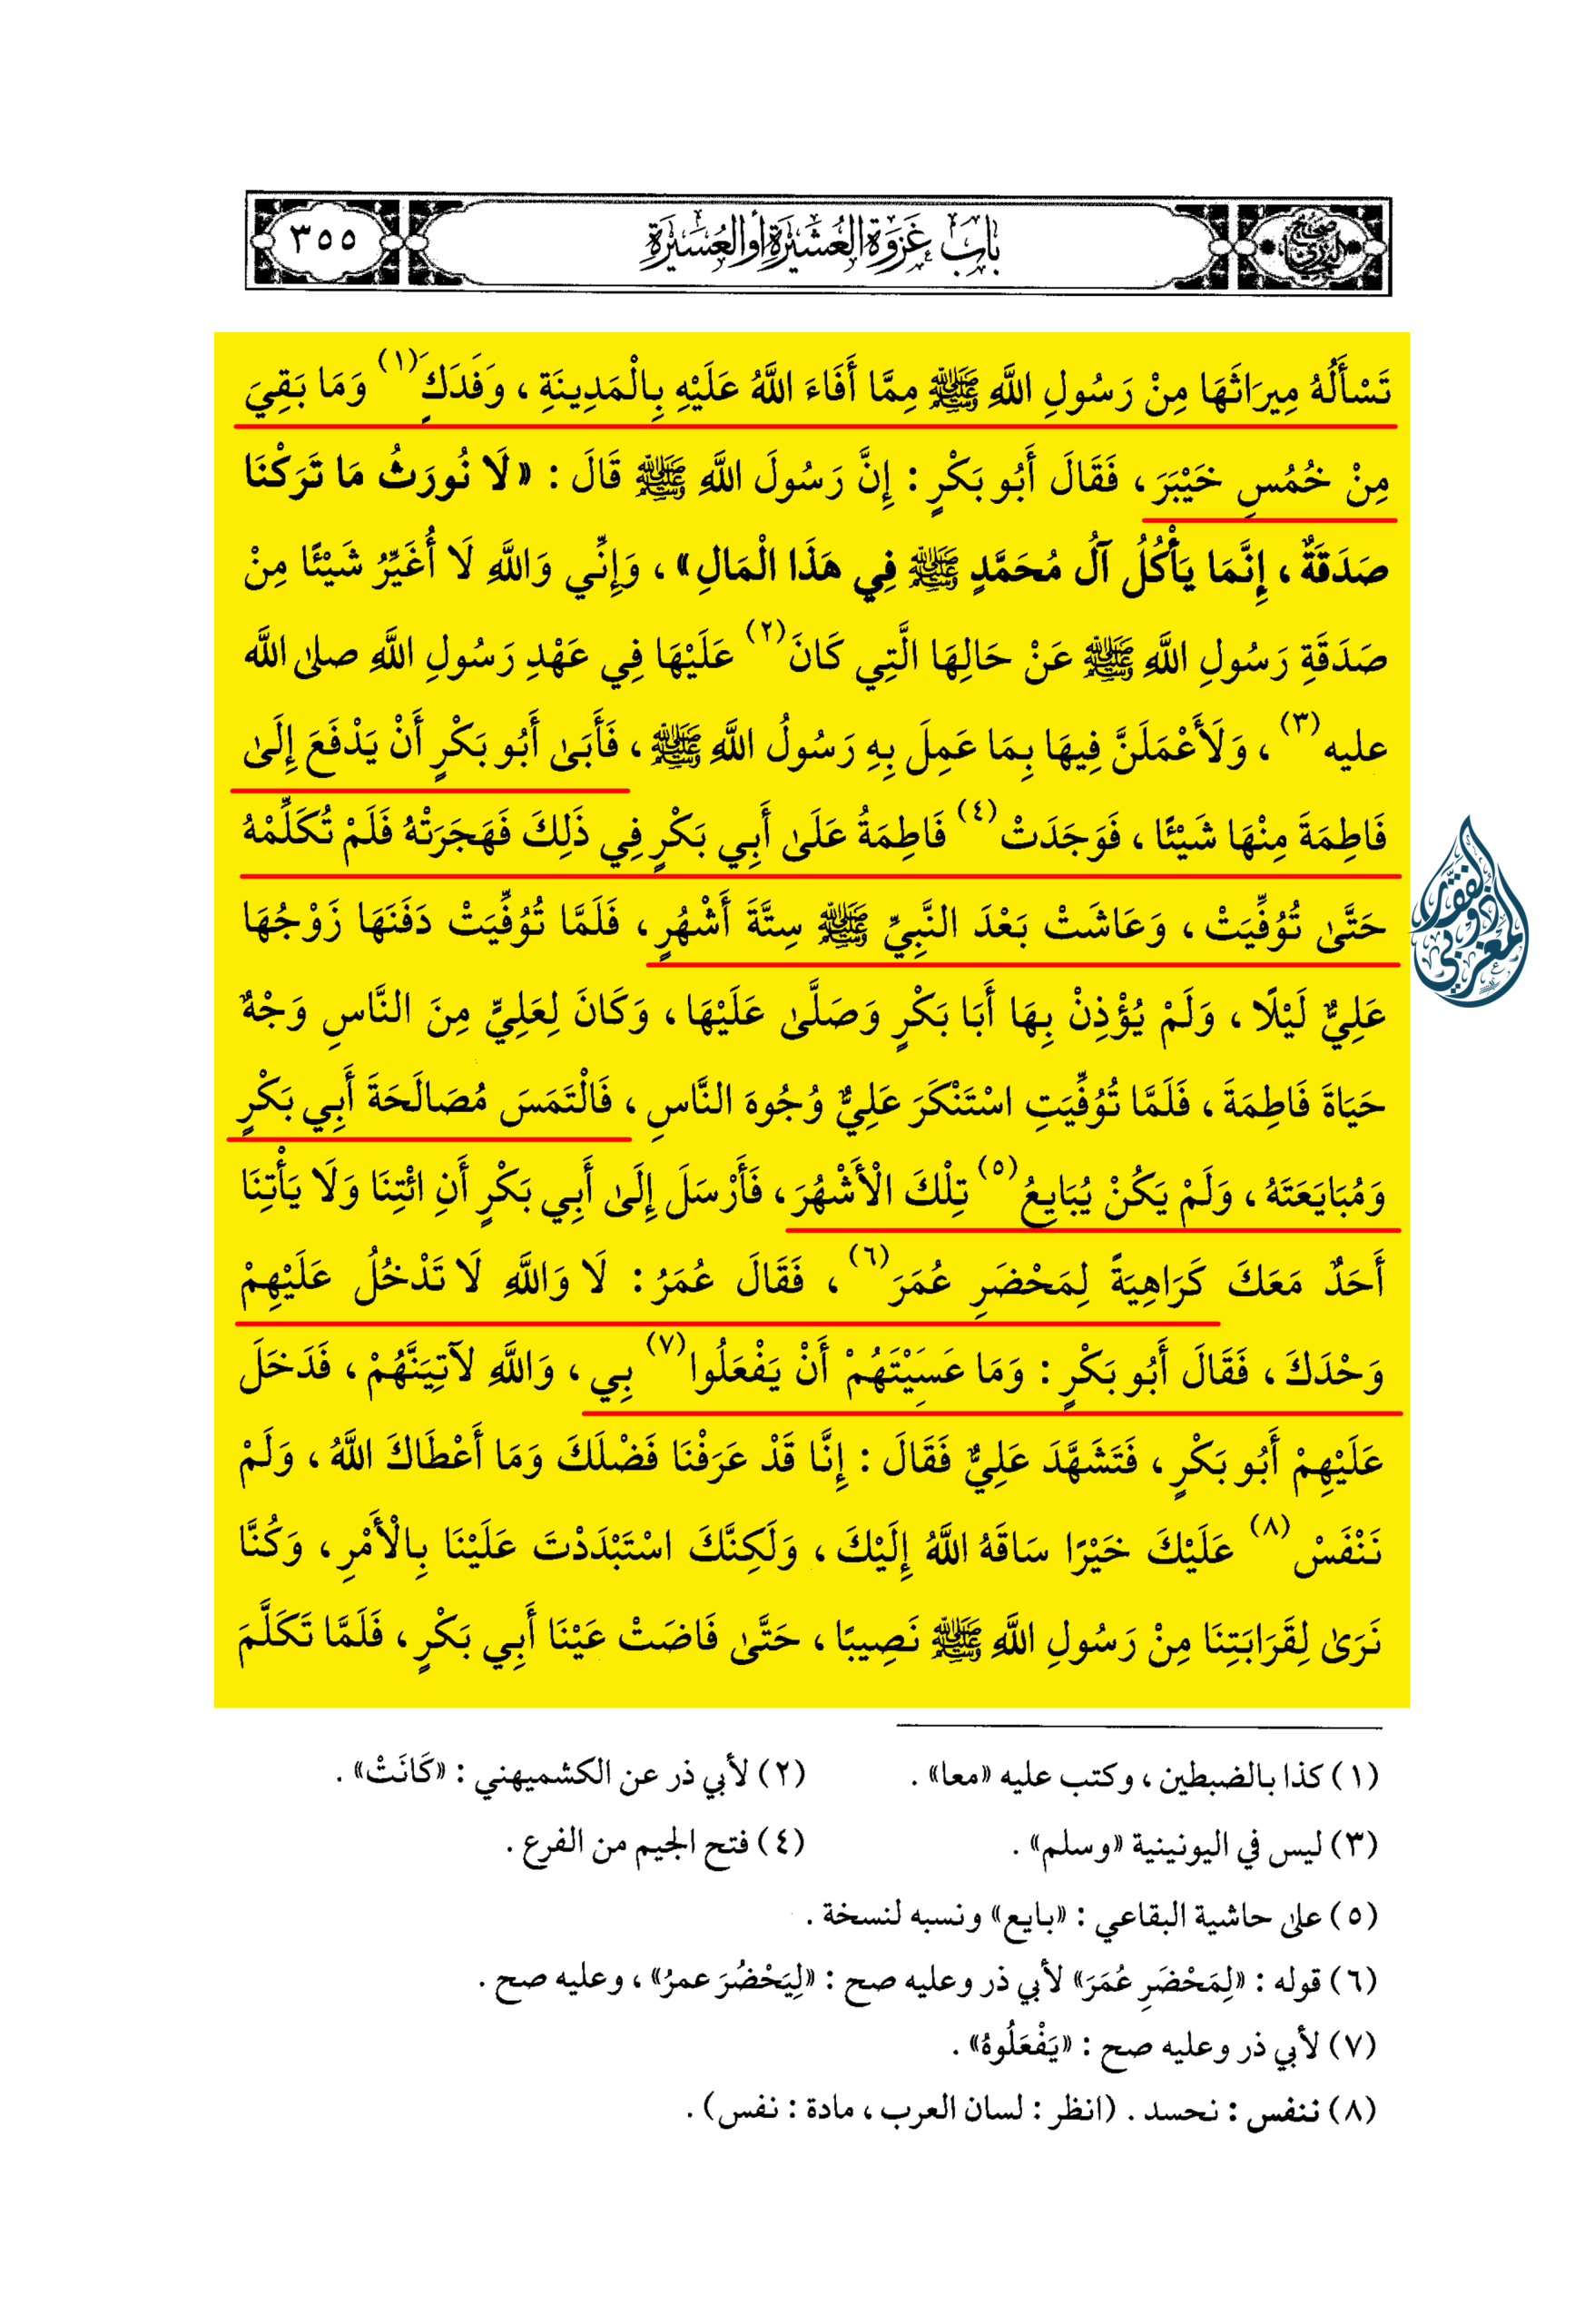 صحيح البخاري
باب غزوة العشيرة أو العسيرة
٣٥٥
تَسْأَلُهُ مِيرَاثَهَا مِنْ رَسُولِ اللَّهِ ﷺ مِمَّا أَفَاءَ اللَّهُ عَلَيْهِ بِالْمَدِينَةِ ، وَفَدَكَِ(١) وَمَا بَقِيَ
مِنْ خُمُسِ خَيْبَرَ ، فَقَالَ أَبُو بَكْرٍ : إِنَّ رَسُولَ اللَّهِ ﷺ قَالَ : «لَا نُورَثُ مَا تَرَكْنَا
صَدَقَةٌ ، إِنَّمَا يَأْكُلُ آلُ مُحَمَّدٍ ﷺ فِي هَذَا الْمَالِ» ، وَإِنِّي وَاللَّهِ لَا أُغَيِّرُ شَيْئًا مِنْ
صَدَقَةِ رَسُولِ اللَّهِ ﷺ عَنْ حَالِهَا الَّتِي كَانَ(٢) عَلَيْهَا فِي عَهْدِ رَسُولِ اللَّهِ صلى الله
عليه(٣) ، وَلَأَعْمَلَنَّ فِيهَا بِمَا عَمِلَ بِهِ رَسُولُ اللَّهِ ﷺ ، فَأَبَىٰ أَبُو بَكْرٍ أَنْ يَدْفَعَ إِلَىٰ
فَاطِمَةَ مِنْهَا شَيْئًا ، فَوَجَدَتْ(٤) فَاطِمَةُ عَلَىٰ أَبِي بَكْرٍ فِي ذَلِكَ فَهَجَرَتْهُ فَلَمْ تُكَلِّمْهُ
حَتَّىٰ تُوُفِّيَتْ ، وَعَاشَتْ بَعْدَ النَّبِيِّ ﷺ سِتَّةَ أَشْهُرٍ ، فَلَمَّا تُوُفِّيَتْ دَفَنَهَا زَوْجُهَا
عَلِيٌّ لَيْلًا ، وَلَمْ يُؤْذِنْ بِهَا أَبَا بَكْرٍ وَصَلَّىٰ عَلَيْهَا ، وَكَانَ لِعَلِيٍّ مِنَ النَّاسِ وَجْهٌ
حَيَاةَ فَاطِمَةَ ، فَلَمَّا تُوُفِّيَتِ اسْتَنْكَرَ عَلِيٌّ وُجُوهَ النَّاسِ ، فَالْتَمَسَ مُصَالَحَةَ أَبِي بَكْرٍ
وَمُبَايَعَتَهُ ، وَلَمْ يَكُنْ يُبَايِعُ(٥) تِلْكَ الْأَشْهُرَ ، فَأَرْسَلَ إِلَىٰ أَبِي بَكْرٍ أَنِ ائْتِنَا وَلَا يَأْتِنَا
أَحَدٌ مَعَكَ كَرَاهِيَةً لِمَحْضَرِ عُمَرَ(٦) ، فَقَالَ عُمَرُ : لَا وَاللَّهِ لَا تَدْخُلُ عَلَيْهِمْ
وَحْدَكَ ، فَقَالَ أَبُو بَكْرٍ : وَمَا عَسَيْتَهُمْ أَنْ يَفْعَلُوا(٧) بِي ، وَاللَّهِ لآتِيَنَّهُمْ ، فَدَخَلَ
عَلَيْهِمْ أَبُو بَكْرٍ ، فَتَشَهَّدَ عَلِيٌّ فَقَالَ : إِنَّا قَدْ عَرَفْنَا فَضْلَكَ وَمَا أَعْطَاكَ اللَّهُ ، وَلَمْ
نَنْفَسْ(٨) عَلَيْكَ خَيْرًا سَاقَهُ اللَّهُ إِلَيْكَ ، وَلَكِنَّكَ اسْتَبْدَدْتَ عَلَيْنَا بِالْأَمْرِ ، وَكُنَّا
نَرَىٰ لِقَرَابَتِنَا مِنْ رَسُولِ اللَّهِ ﷺ نَصِيبًا ، حَتَّىٰ فَاضَتْ عَيْنَا أَبِي بَكْرٍ ، فَلَمَّا تَكَلَّمَ
(١) كذا بالضبطين ، وكتب عليه «معا» . (٢) لأبي ذر عن الكشميهني : «كَانَتْ» .
(٣) ليس في اليونينية «وسلم» . (٤) فتح الجيم من الفرع .
(٥) على حاشية البقاعي : «بايع» ونسبه لنسخة .
(٦) قوله : «لِمَحْضَرِ عُمَرَ» لأبي ذر وعليه صح : «لِيَحْضُرَ عمرُ» ، وعليه صح .
(٧) لأبي ذر وعليه صح : «يَفْعَلُوهُ» .
(٨) ننفس : نحسد . (انظر : لسان العرب ، مادة : نفس) .